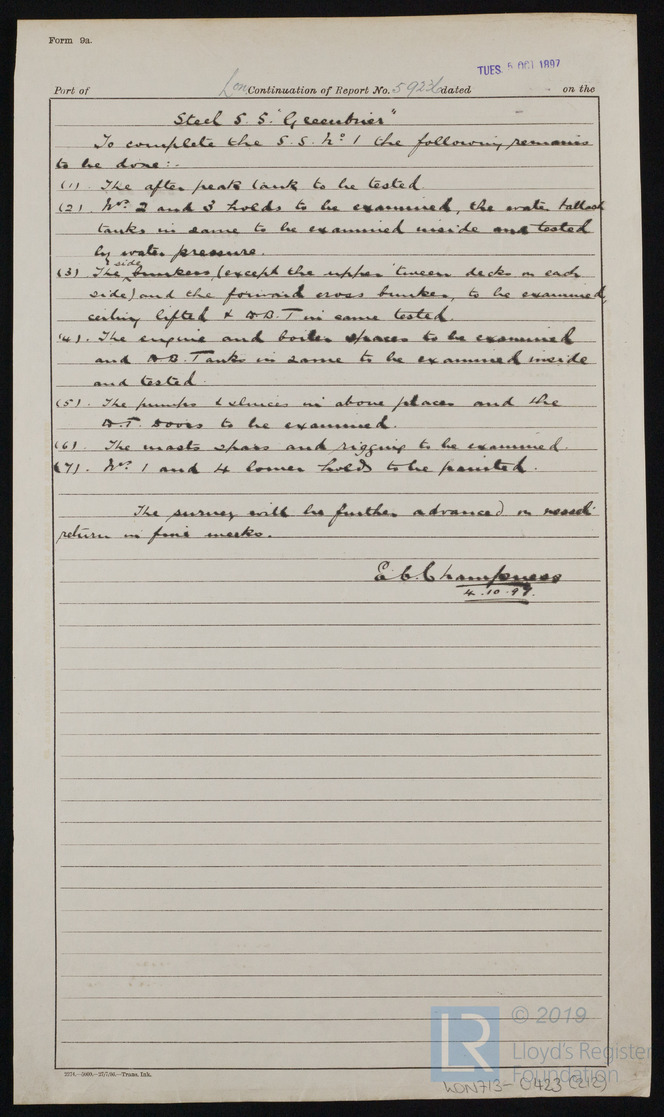 Form 9a.
TUES. 5 OCT 1897
Port of Lon Continuation of Report No. 59236 dated on the
Steel S. S. "Greenbrier"
To complete the S. S. No. 1 the following remains
to be done:-
(1). The after peak tank to be tested
(2). Nos. 2 and 3 holds to be examined, the water ballast
tanks in same to be examined inside and tested
by water pressure.
(3) The side bunkers, (except the upper 'tween decks on each
side) and the forward cross bunker, to be examined,
ceiling lifted & D.B.T in same tested.
(4). The engine and boiler spaces to be examined
and D.B. Tanks in same to be examined inside
and tested.
(5). The pumps & sluices in above places and the
W.T. Doors to be examined.
(6). The masts spars and rigging to be examined.
(7). Nos. 1 and 4 lower holds to be painted.
The survey will be further advanced on vessels
return in five weeks.
E C Champness
4.10.97.
2274.—5000.—27/7/96.—Trans. Ink.
© 2019
LR
Lloyd's Register
Foundation
LON713-0423(212)